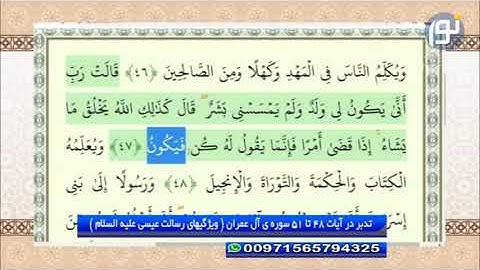 نور
وَيُكَلِّمُ النَّاسَ فِي الْمَهْدِ وَكَهْلًا وَمِنَ الصَّالِحِينَ ﴿٤٦﴾ قَالَتْ رَبِّ
أَنَّىٰ يَكُونُ لِي وَلَدٌ وَلَمْ يَمْسَسْنِي بَشَرٌ ۖ قَالَ كَذَٰلِكِ اللَّهُ يَخْلُقُ مَا
يَشَاءُ ۚ إِذَا قَضَىٰ أَمْرًا فَإِنَّمَا يَقُولُ لَهُ كُن فَيَكُونُ ﴿٤٧﴾ وَيُعَلِّمُهُ
الْكِتَابَ وَالْحِكْمَةَ وَالتَّوْرَاةَ وَالْإِنجِيلَ ﴿٤٨﴾ وَرَسُولًا إِلَىٰ بَنِي
تدبر در آیات ۴۸ تا ۵۱ سوره ی آل عمران ( ویژگیهای رسالت عیسی علیه السلام )
00971565794325